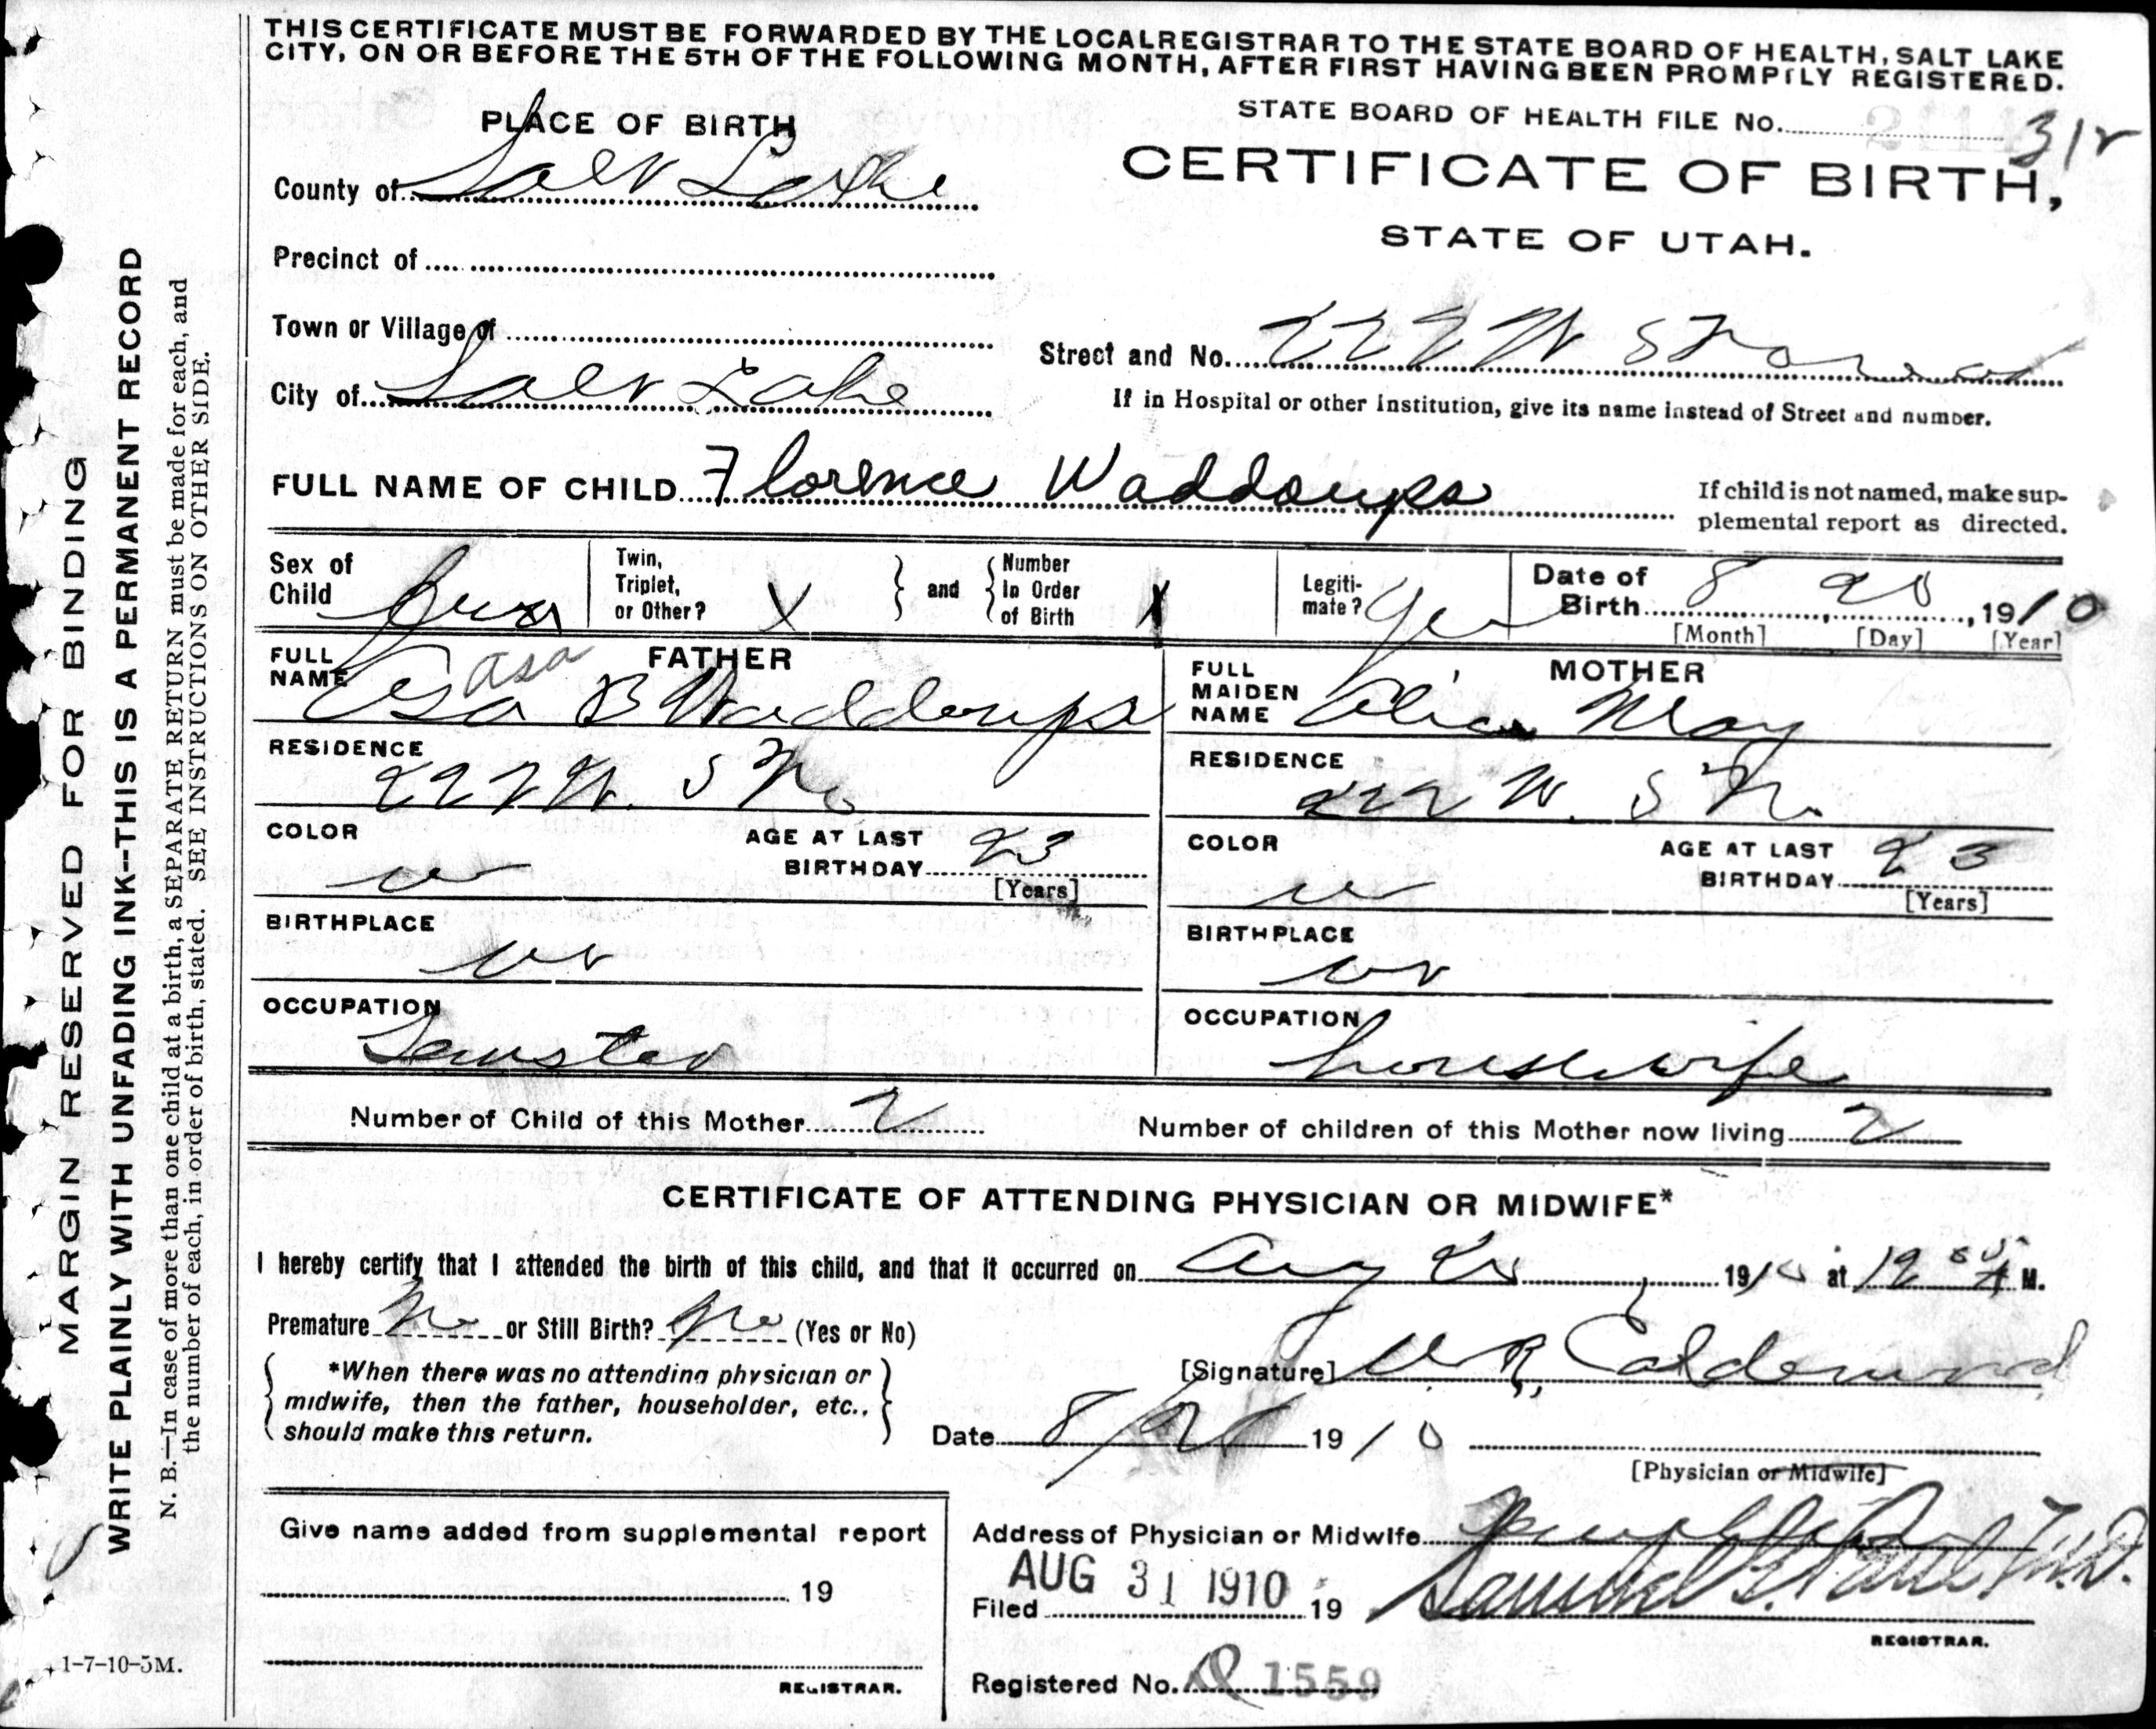 THIS CERTIFICATE MUST BE FORWARDED BY THE LOCAL REGISTRAR TO THE STATE BOARD OF HEALTH, SALT LAKE
CITY, ON OR BEFORE THE 5TH OF THE FOLLOWING MONTH, AFTER FIRST HAVING BEEN PROMPTLY REGISTERED.
PLACE OF BIRTH
STATE BOARD OF HEALTH FILE No. 312
County of Salt Lake
CERTIFICATE OF BIRTH,
STATE OF UTAH.
Precinct of
Town or Village of
Street and No. 222 W
City of Salt Lake
If in Hospital or other Institution, give its name instead of Street and number.
FULL NAME OF CHILD Florence Waddoups
If child is not named, make sup-
plemental report as directed.
Sex of Child
Twin, Triplet, or Other? X and Number In Order of Birth X
Legiti-mate? Yes
Date of Birth 8 20, 1910
[Month] [Day] [Year]
FATHER
FULL NAME Asa B Waddoups
Asa
RESIDENCE
222 W. S
COLOR w
AGE AT LAST BIRTHDAY 23
[Years]
BIRTHPLACE
ut
OCCUPATION
Teamster
MOTHER
FULL MAIDEN NAME Alice May
RESIDENCE
222 W. S
COLOR w
AGE AT LAST BIRTHDAY 23
[Years]
BIRTHPLACE
ut
OCCUPATION
housewife
Number of Child of this Mother 2
Number of children of this Mother now living 2
CERTIFICATE OF ATTENDING PHYSICIAN OR MIDWIFE*
I hereby certify that I attended the birth of this child, and that it occurred on Aug 20, 1910 at 12 A M.
Premature No or Still Birth? No (Yes or No)
*When there was no attending physician or
midwife, then the father, householder, etc.,
should make this return.
[Signature] R. Calderwood
Date 8/ 1910
[Physician or Midwife]
Give name added from supplemental report
19
REGISTRAR.
Address of Physician or Midwife
AUG 31 1910
Filed 19
Samuel G. Paul M.D.
REGISTRAR.
Registered No. 1559
MARGIN RESERVED FOR BINDING
WRITE PLAINLY WITH UNFADING INK--THIS IS A PERMANENT RECORD
N. B.—In case of more than one child at a birth, a SEPARATE RETURN must be made for each, and
the number of each, in order of birth, stated. SEE INSTRUCTIONS ON OTHER SIDE.
1-7-10-5M.